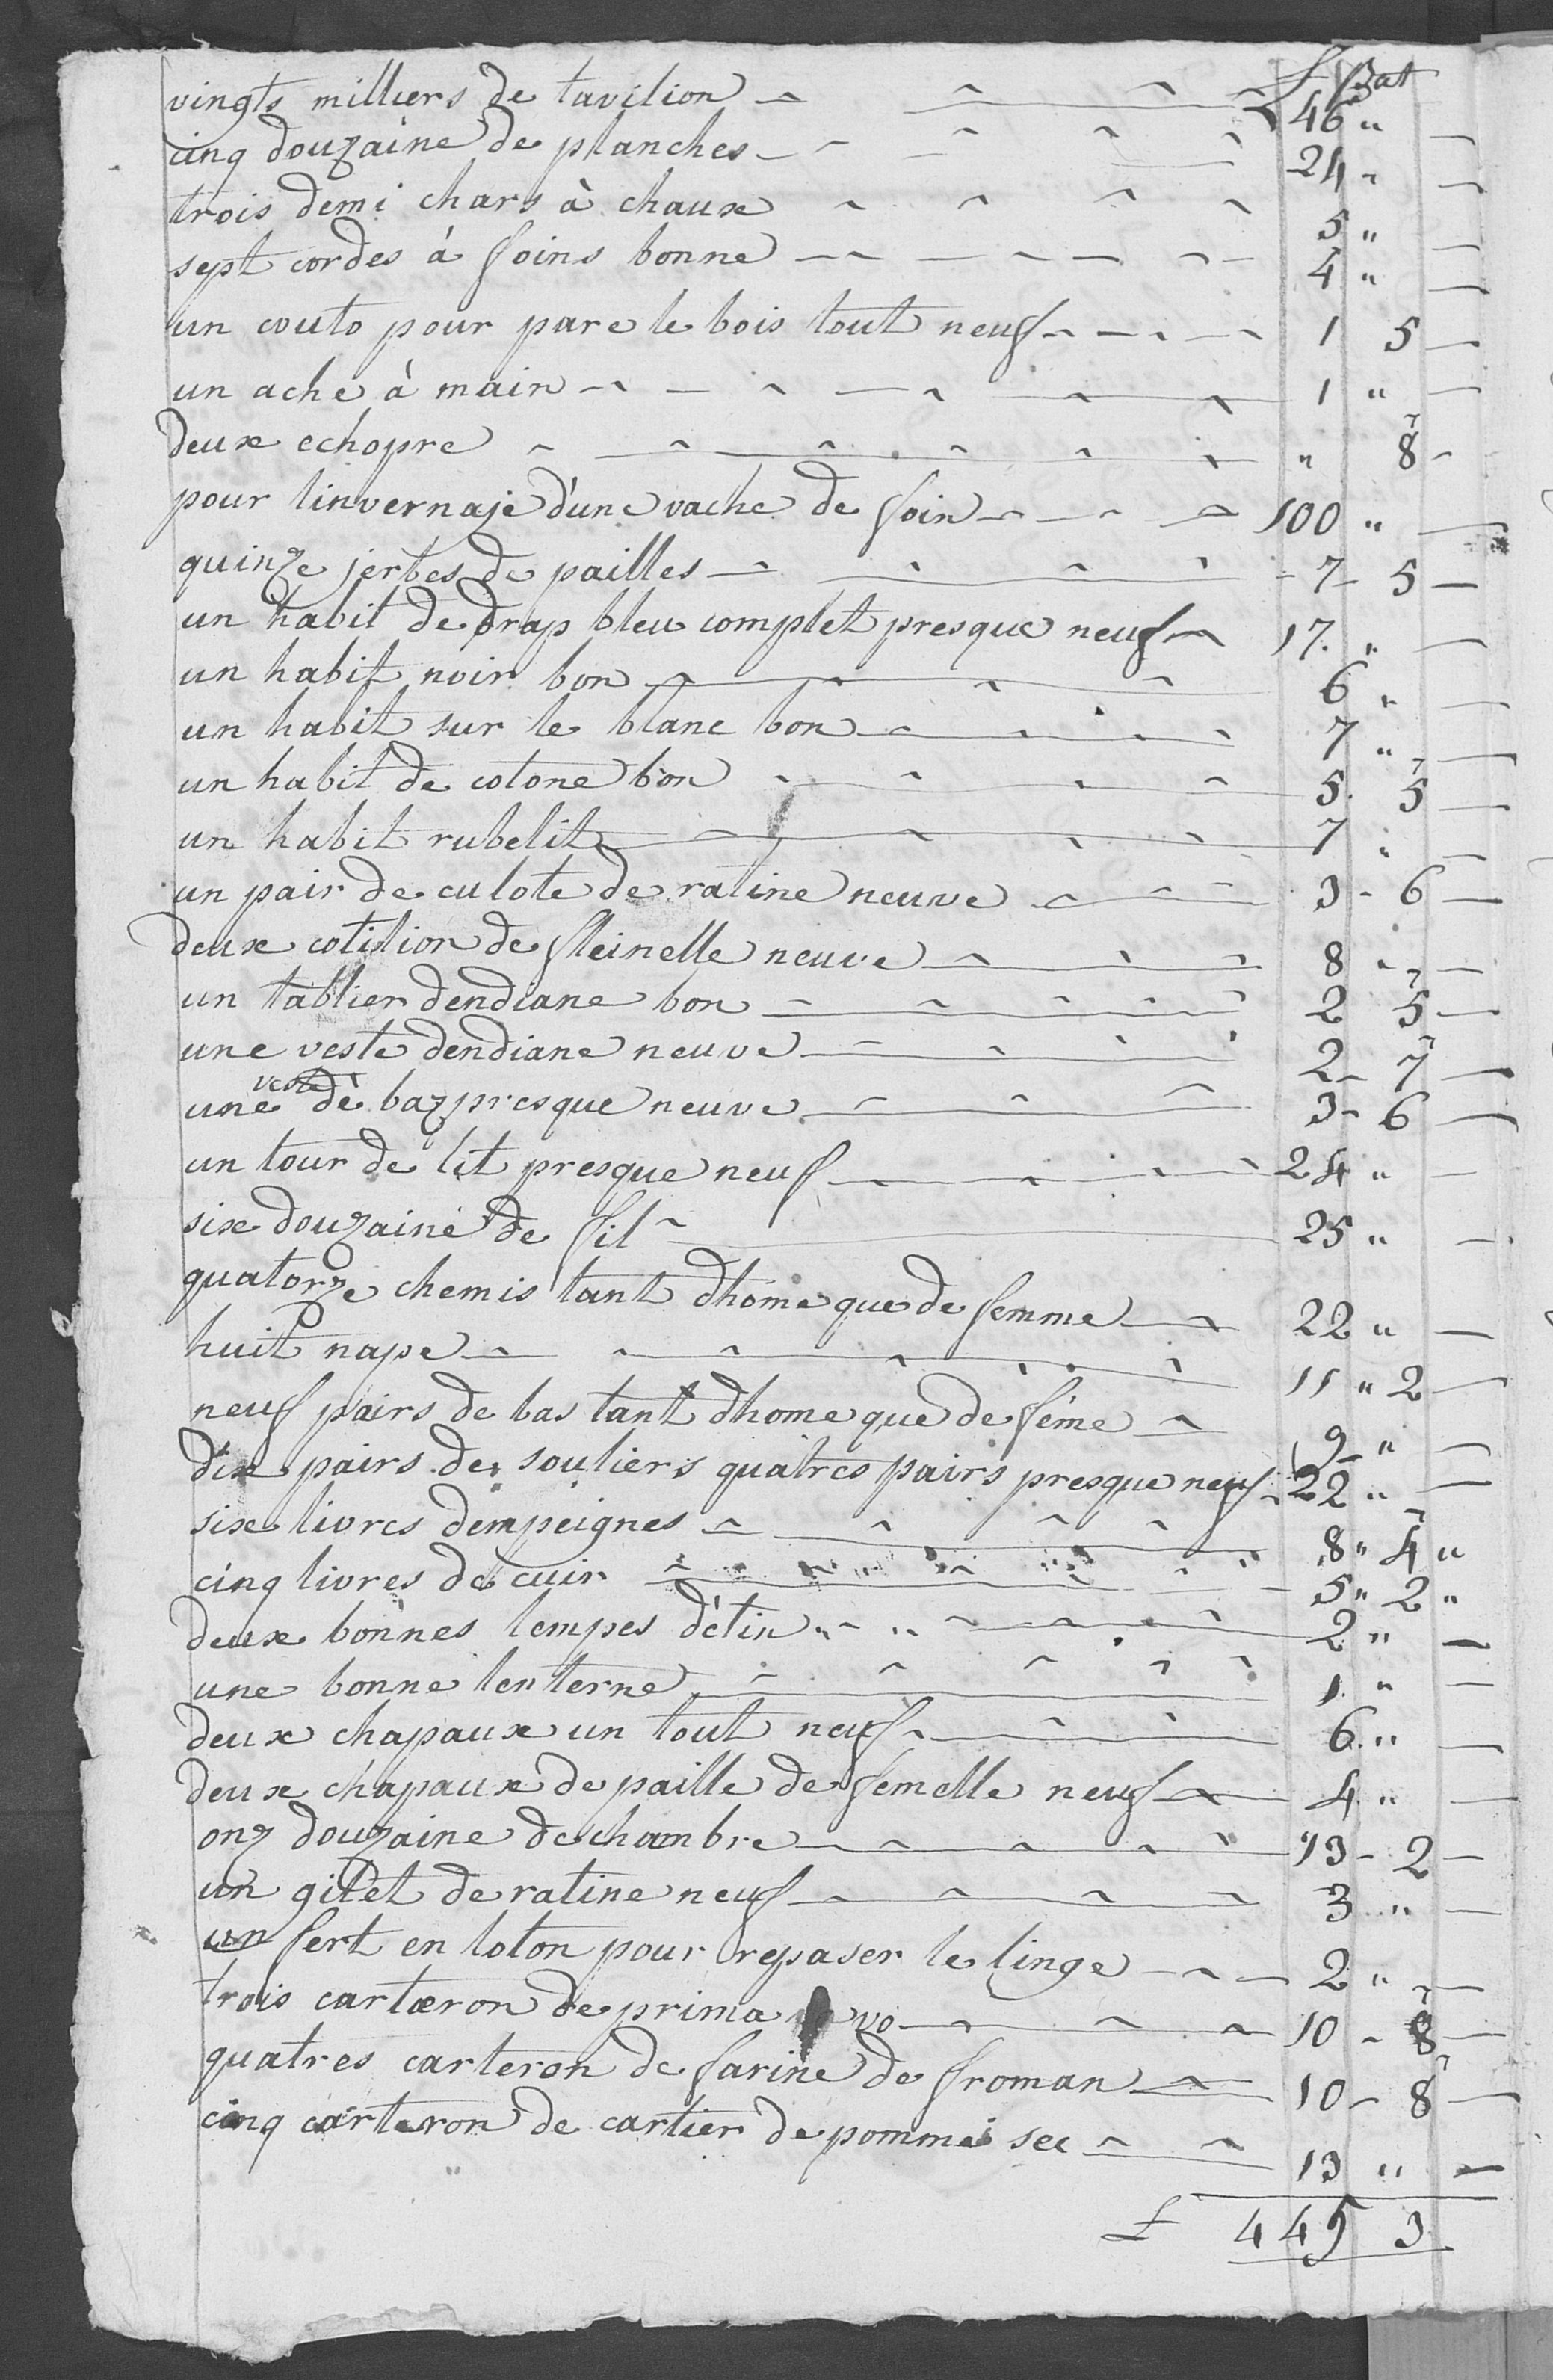 £ Bat
vingts milliers de tavilion 46 "
cinq douzaine de planches 24 "
trois demi chars à chaux 5 "
sept cordes à foins bonne 4 "
un couto pour pare le bois tout neuf 1 5
un ache à main 1 "
deux echopre " 8
pour linvernaje d'une vache de foin 100 "
quinze jerbes de pailles 7 5
un habit de drap bleu complet presque neuf 17 "
un habit noir bon 6 "
un habit sur le blanc bon 7 "
un habit de cotone bon 5 5
un habit rubelit 7 "
un pair de culote de ratine neuve 3 - 6
deux cotilion de fleinelle neuve 8 "
un tablier dendiane bon 2 5
une veste dendiane neuve 2 - 7
une veste de baz presque neuve 3 - 6
un tour de lit presque neuf 24 "
six douzaine de fil 25 "
quatorze chemis tant dhome que de femme 22 "
huit nape 11 " 2
neuf pairs de bas tant dhome que de féme 9 "
dix pairs de souliers quatres pairs presque neuf 22 "
six livres dempeignes 8 " 4 "
cinq livres de cuir 5 " 2 "
deux bonnes lempes d'étin 2 "
une bonne lenterne 1 "
deux chapaux un tout neuf 6 "
deux chapaux de paille de femelle neuf 4 "
onz douzaine de chambre 13 - 2
un gilet de ratine neuf 3 "
un fert en loton pour repaser le linge 2 "
trois carteron de prima vo 10 - 8
quatres carteron de farine de froman 10 - 8
cinq carteron de cartier de pomme sec 13 "
£ 445 3